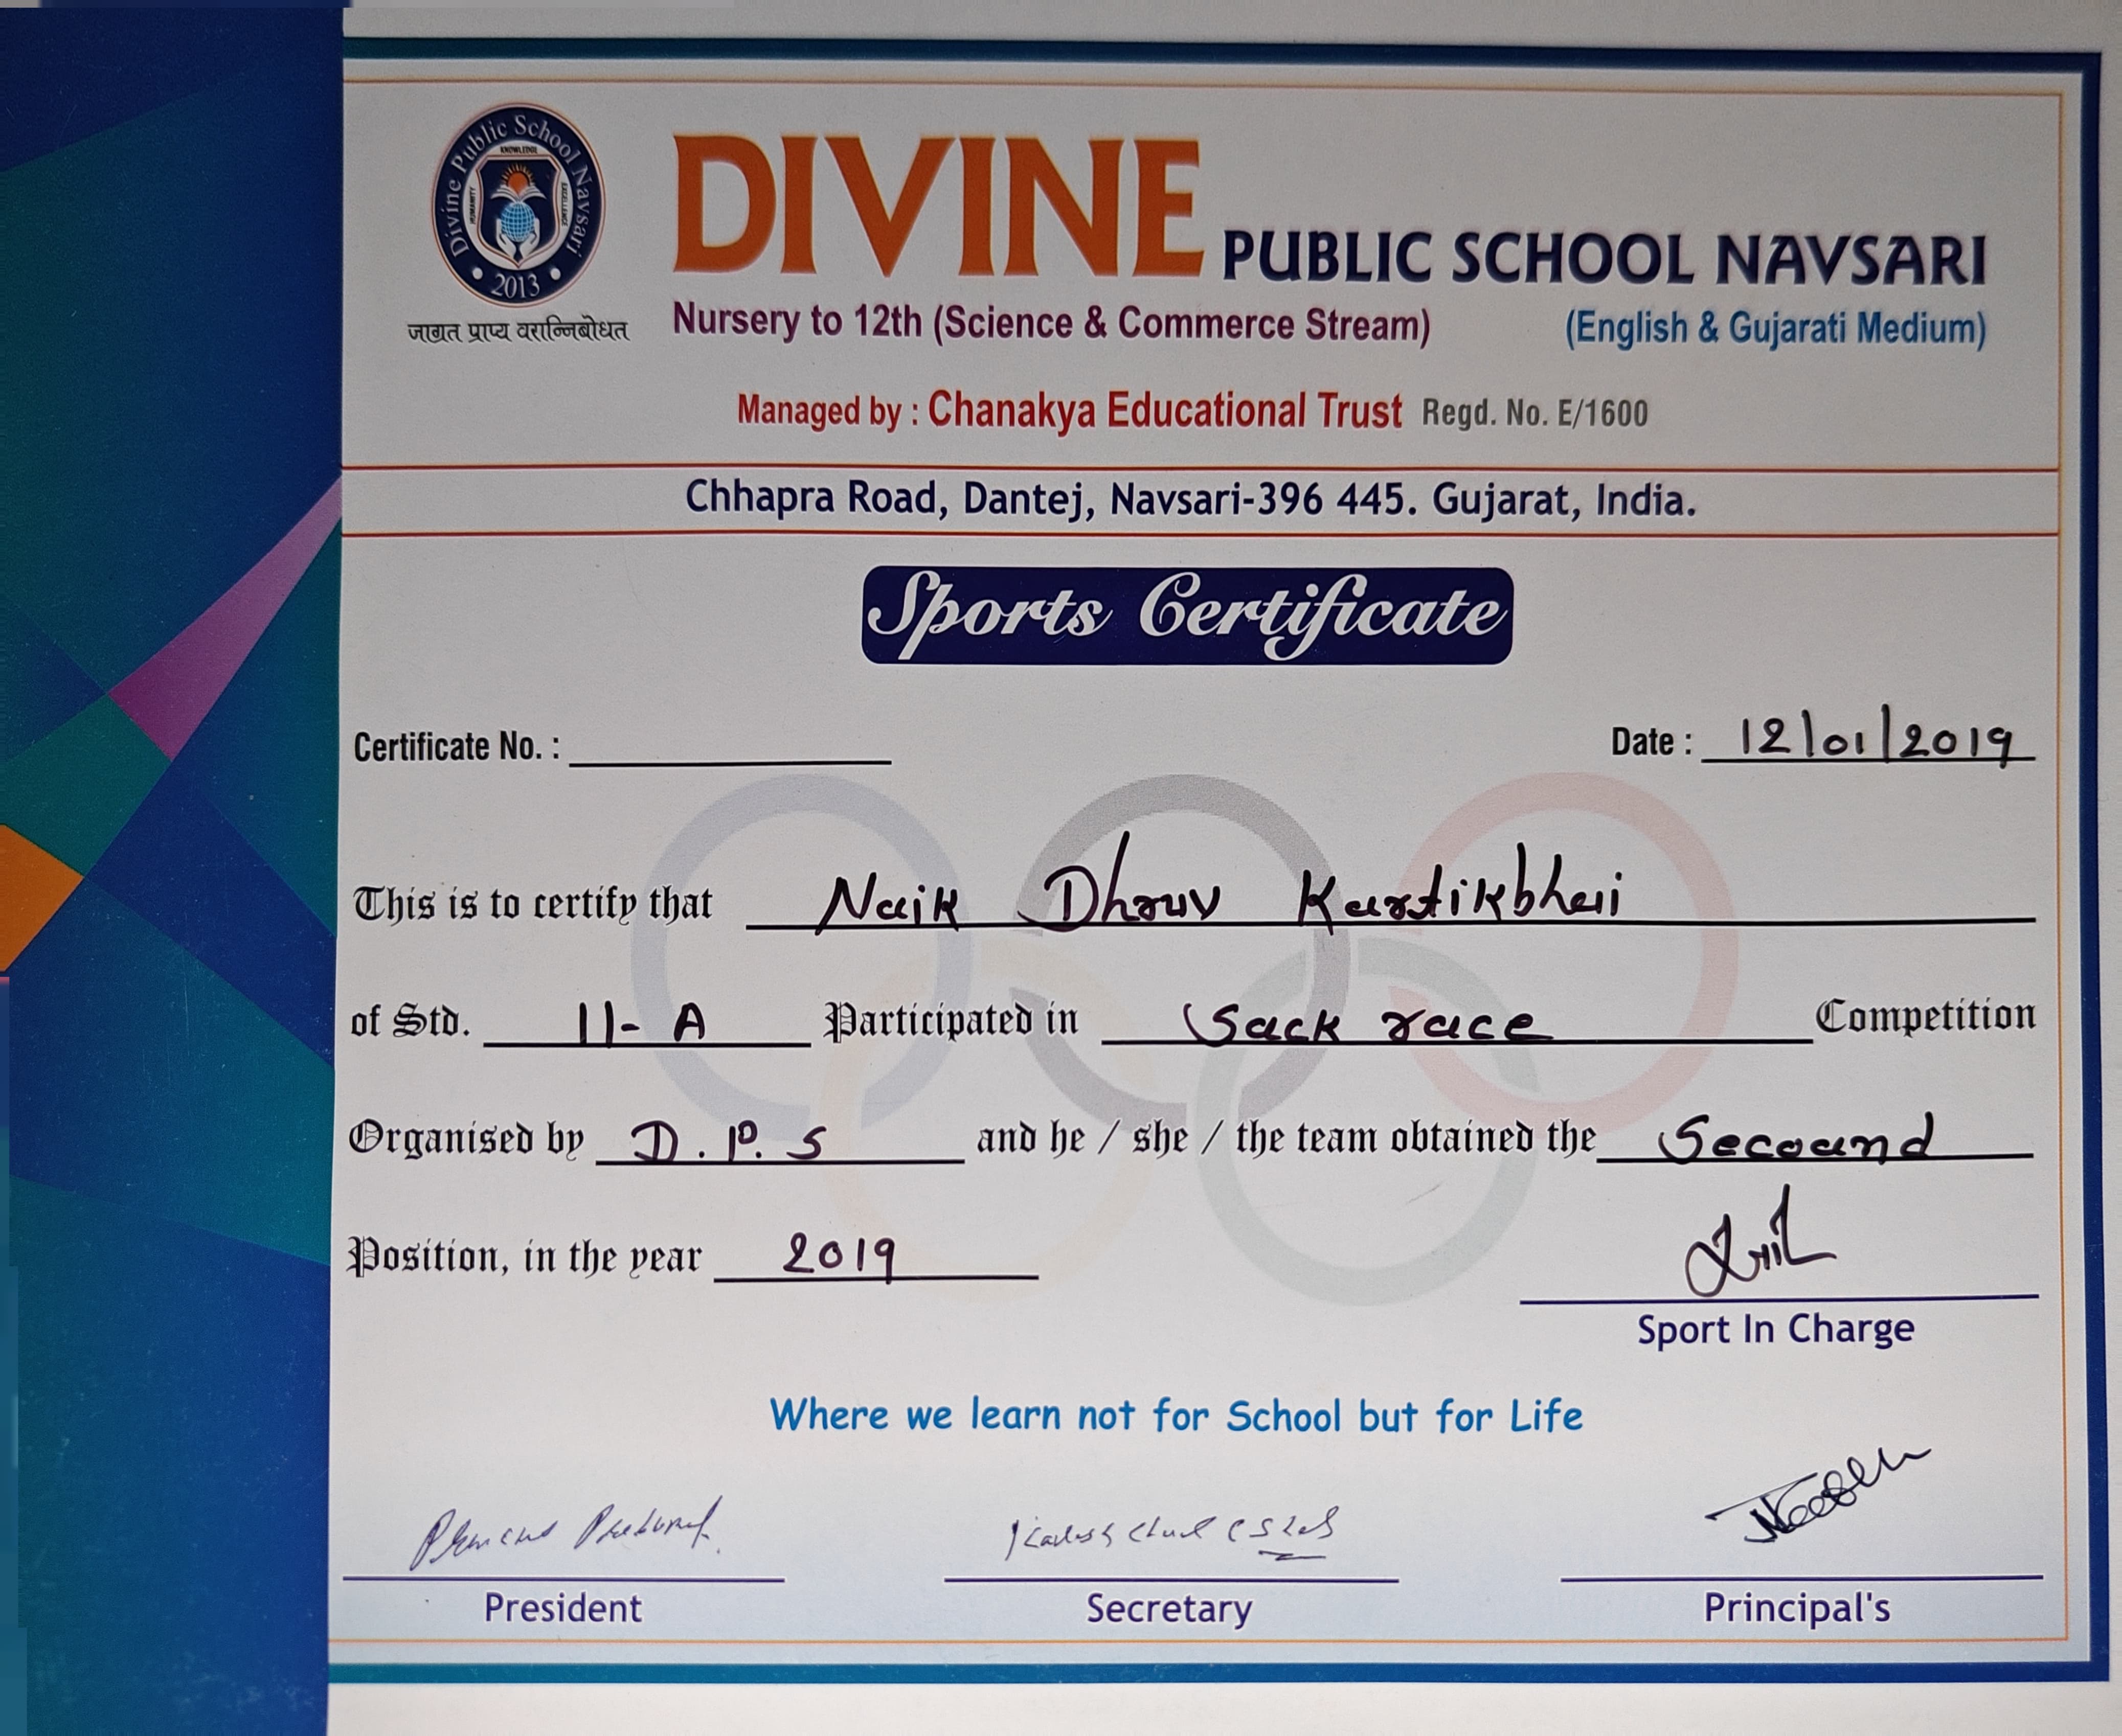 Divine Public School Navsari
KNOWLEDGE
HUMANITY
EXCELLENCE
• 2013 •
जाग्रत प्राप्य वरान्निबोधत
DIVINE PUBLIC SCHOOL NAVSARI
Nursery to 12th (Science & Commerce Stream) (English & Gujarati Medium)
Managed by : Chanakya Educational Trust Regd. No. E/1600
Chhapra Road, Dantej, Navsari-396 445. Gujarat, India.
Sports Certificate
Certificate No. : Date : 12/01/2019
This is to certify that Naik Dhruv Kartikbhai
of Std. 11- A Participated in Sack race Competition
Organised by D.P.S and he / she / the team obtained the Secound
Position, in the year 2019
Sport In Charge
Where we learn not for School but for Life
President Secretary Principal's